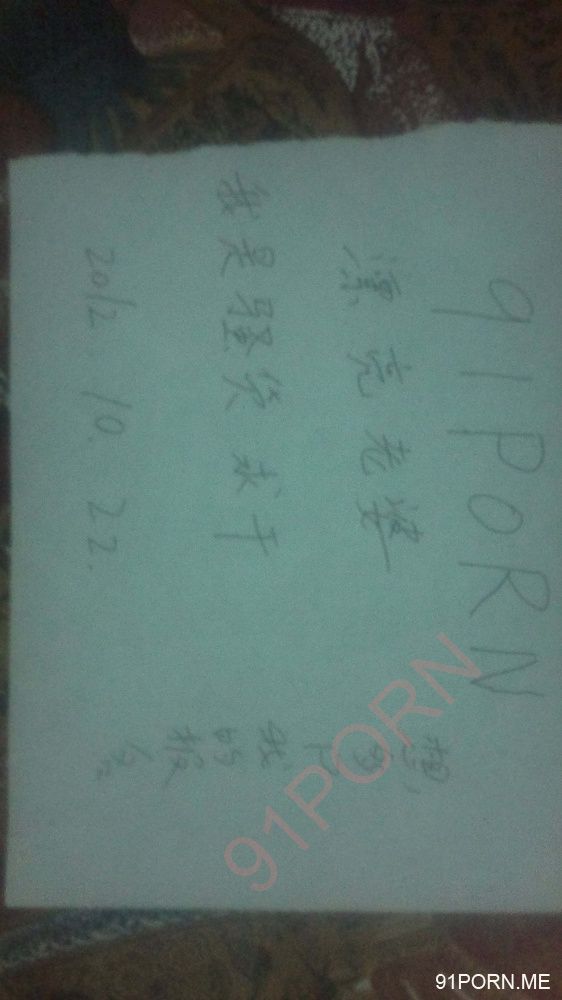 91PORN
漂亮老婆
我是骚货 求干
2012.10.22.
想
我的
91PORN
91PORN.ME